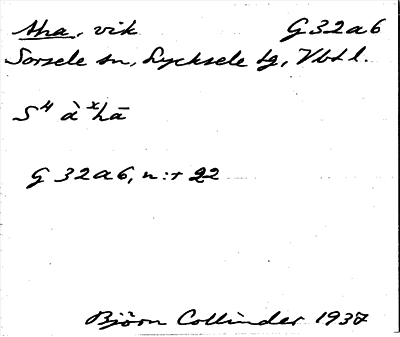 Aha, vik G32a6
Sorsele sn, Lycksele lg, Vbtl.
S⁴ àˣhā
G 32a6, n:r 22
Björn Collinder 1937